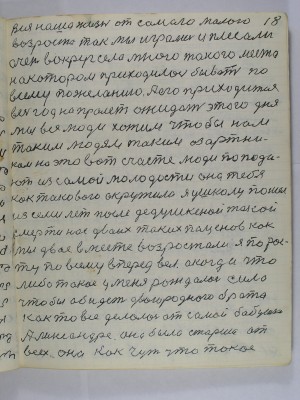 вся наша жизнь от самого малого 18
возроста так мы играли и плесали
очен вокруг села много такого места
на котором приходилос бывать по
всему пожеланию. Я его приходится
вез год на пролет ожидать этого дня
мы вся люди хотим что бы нам
таким людям таким озартни-
кам на это вот счастє люди попода-
ют из самой молодости она тебя
как такового окружила я у школу пошол
из семи лет после дедушкеной такой
смерти нас двоих таких пацонов как
мы двоє вместе возростали я по рос-
ту по всему вперед вел, а когда что
либо такое у меня рождалос сила
чтобы обидет двоюродного брата
как то все делолос от самой бабушки
Александре, она была старше от
всех, она как чут что такое